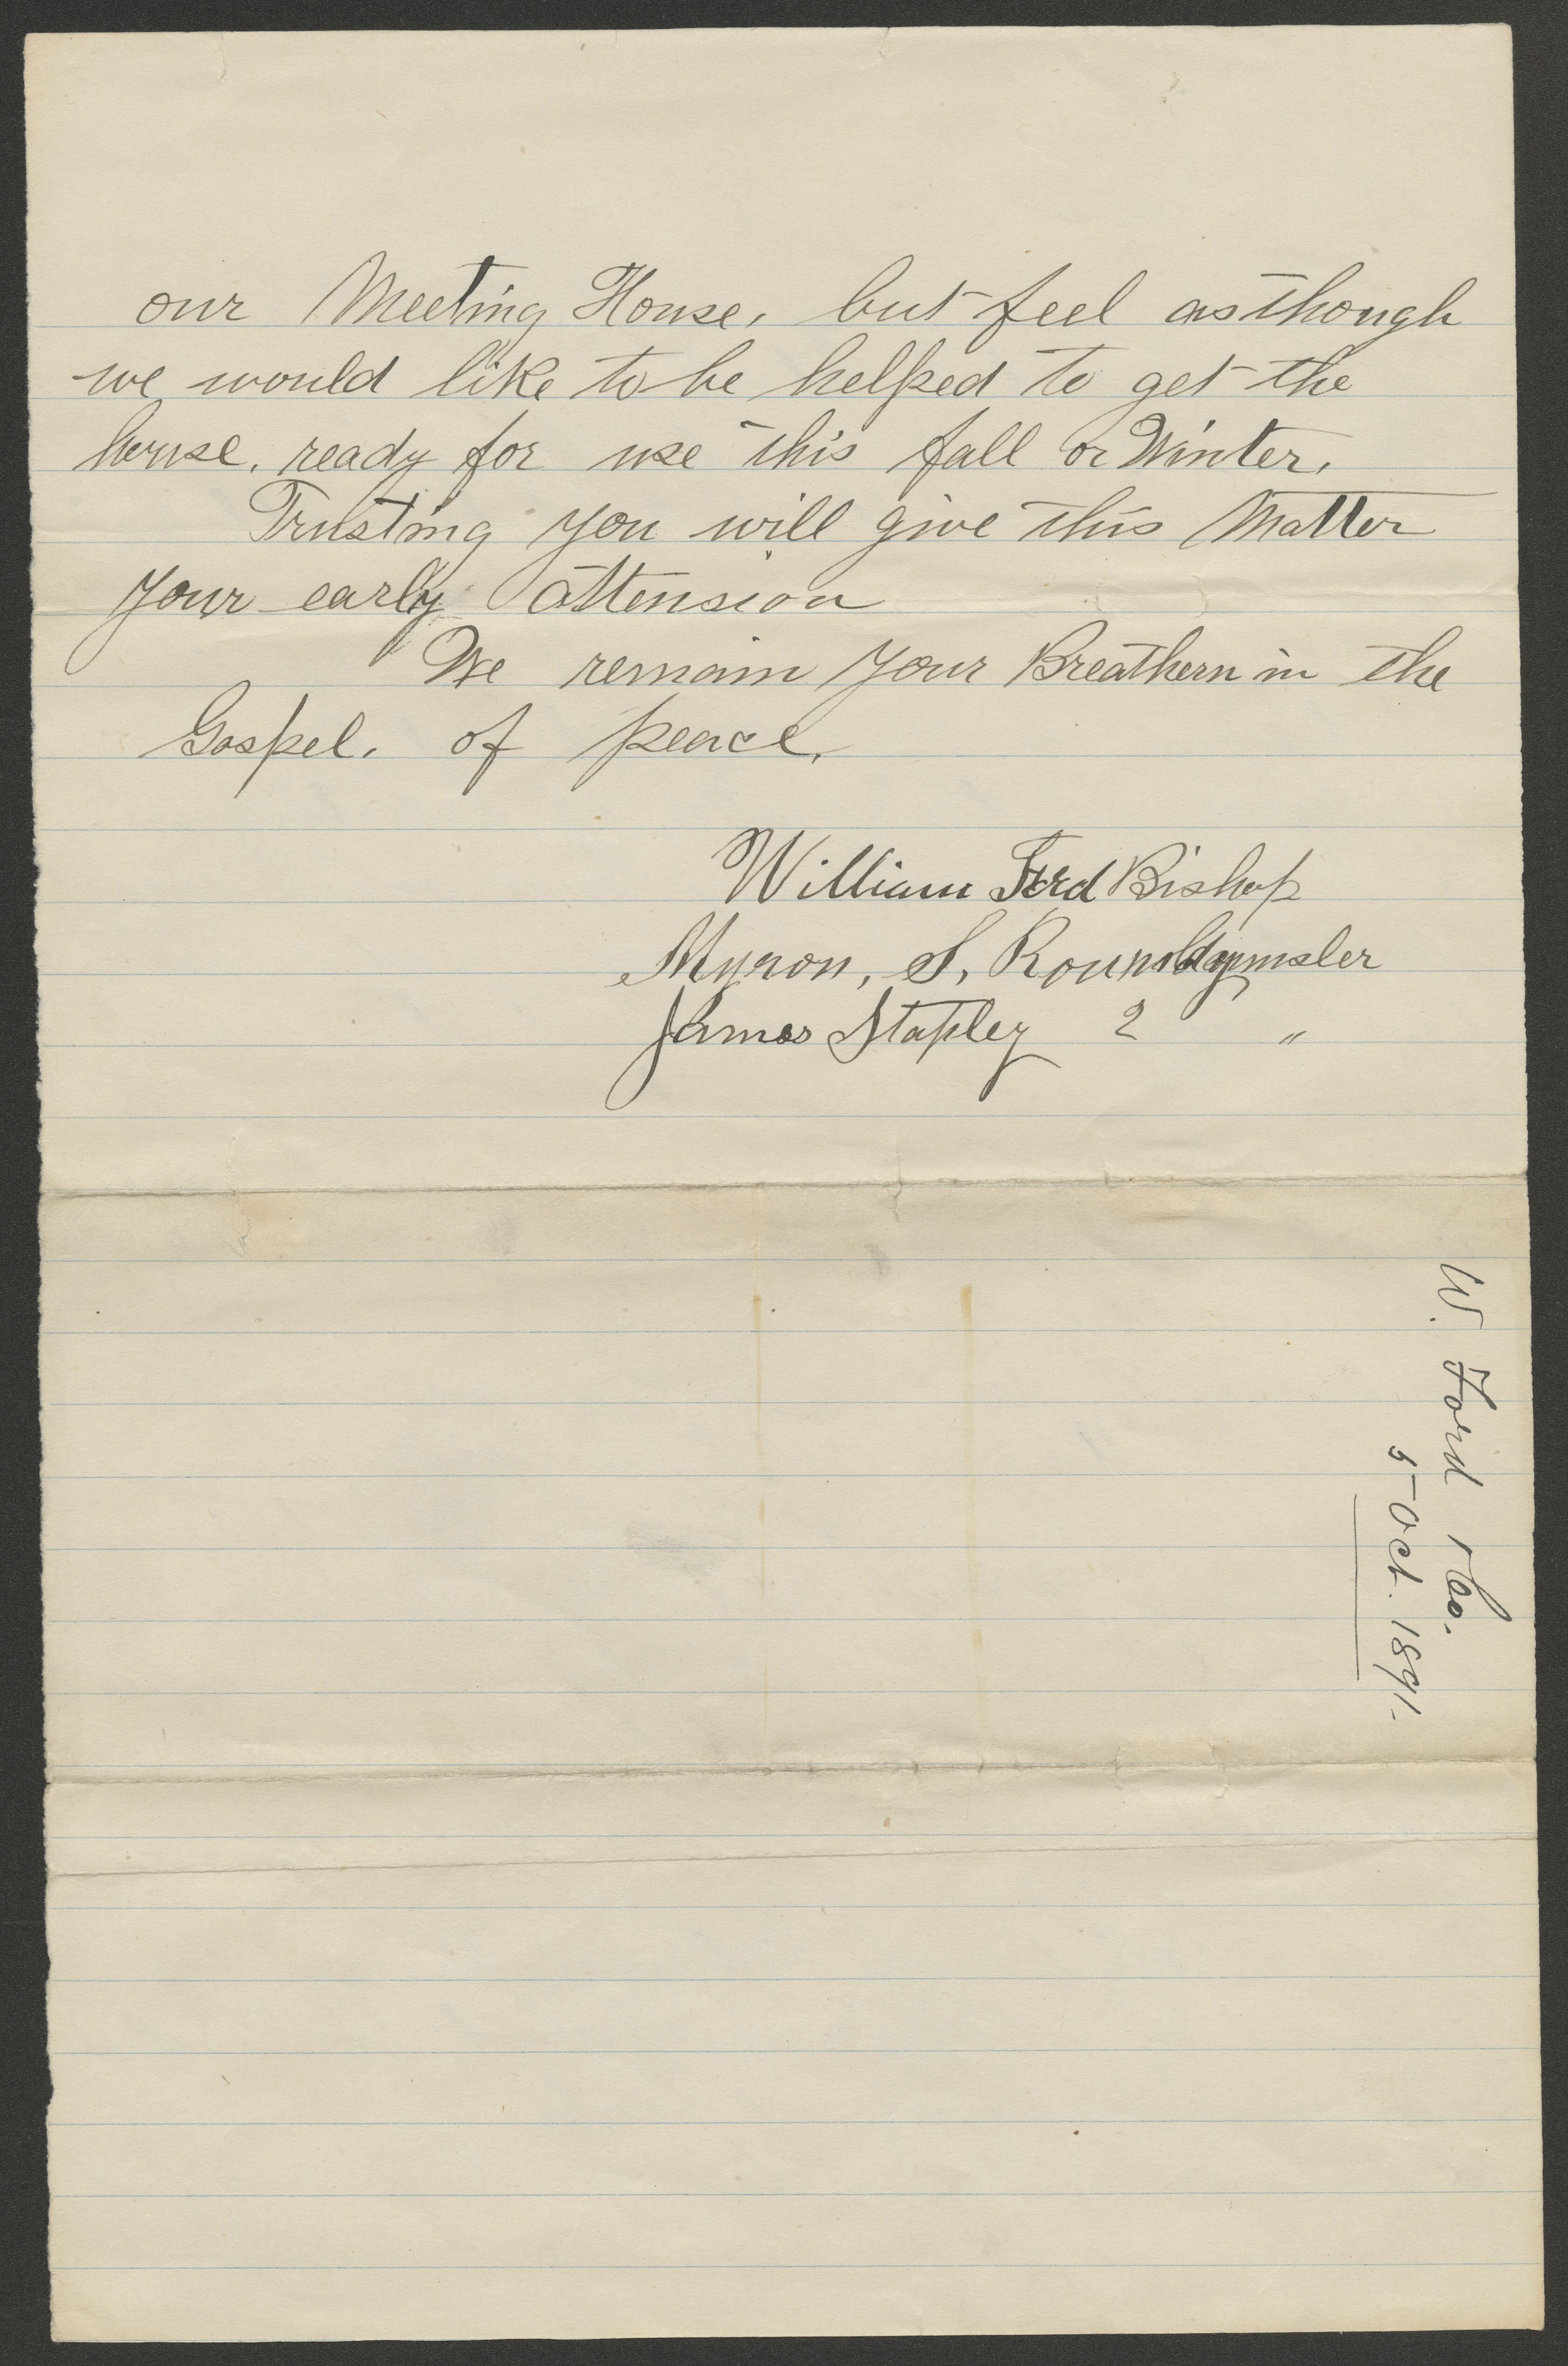 our Meeting House, but feel as though
we would like to be helped to get the
house. ready for use this fall or Winter.
Trusting you will give this Matter
your early attension
We remain your Breathern in the
Gospel. of peace.
William Ford Bishop
Myron, S, Roundy
James Stapley 2 "
W. Ford & Co.
5 Oct. 1891.